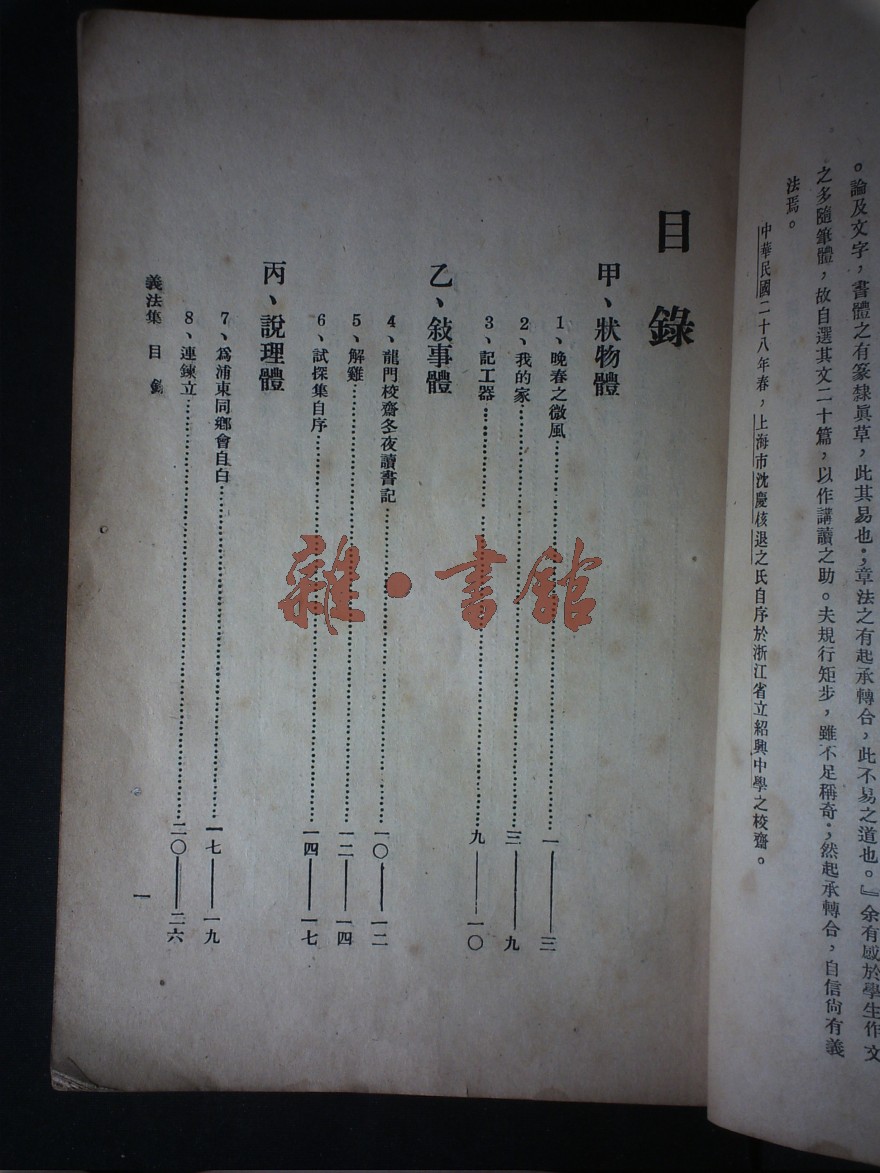 。論及文字，書體之有篆隸眞草，此其易也；章法之有起承轉合，此不易之道也。』余有感於學生作文
之多隨筆體，故自選其文二十篇，以作講讀之助。夫規行矩步，雖不足稱奇；然起承轉合，自信尙有義
法焉。
中華民國二十八年春，上海市沈慶侅退之氏自序於浙江省立紹興中學之校齋。
目錄
甲、狀物體
1、晚春之微風 一——三
2、我的家 三——九
3、記工器 九——一〇
乙、敍事體
4、龍門校齋冬夜讀書記 一〇——一二
5、解雞 一二——一四
6、試探集自序 一四——一七
丙、說理體
7、爲浦東同鄉會自白 一七——一九
8、連鍊立 二〇——二六
義法集 目錄
一
雜·書館